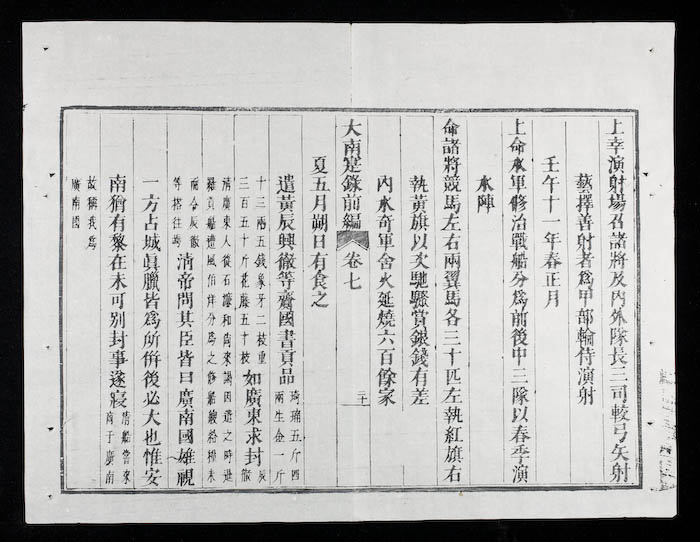 上幸演射場召諸將及內外隊長三司較弓矢射
藝擇善射者爲甲部輪侍演射
壬午十一年春正月
上命水軍修治戰船分爲前後中三隊以春季演
水陣
命諸將競馬左右兩翼馬各三十匹左執紅旗右
執黃旗以次馳騁賞銀錢有差
內水奇軍舍火延燒六百餘家
大南寔錄前編 卷七
二十
夏五月朔日有食之
遣黃辰興徹等齎國書貢品
琦㻴五斤四
兩生金一斤
十三兩五錢象牙二枝重
三百五十斤花藤五十枝
如廣東求封
辰
徹
清廣東人後石濂和尚來謁因遣之時暹
羅貢船遭風
爲之修船
而令辰徹
等搭往焉
清帝問其臣皆曰廣南國雄視
一方占城眞臘皆爲所併後必大也惟安
南猶有黎在未可別封事遂寢
清船嘗來
商于廣南
故稱我爲
廣南國